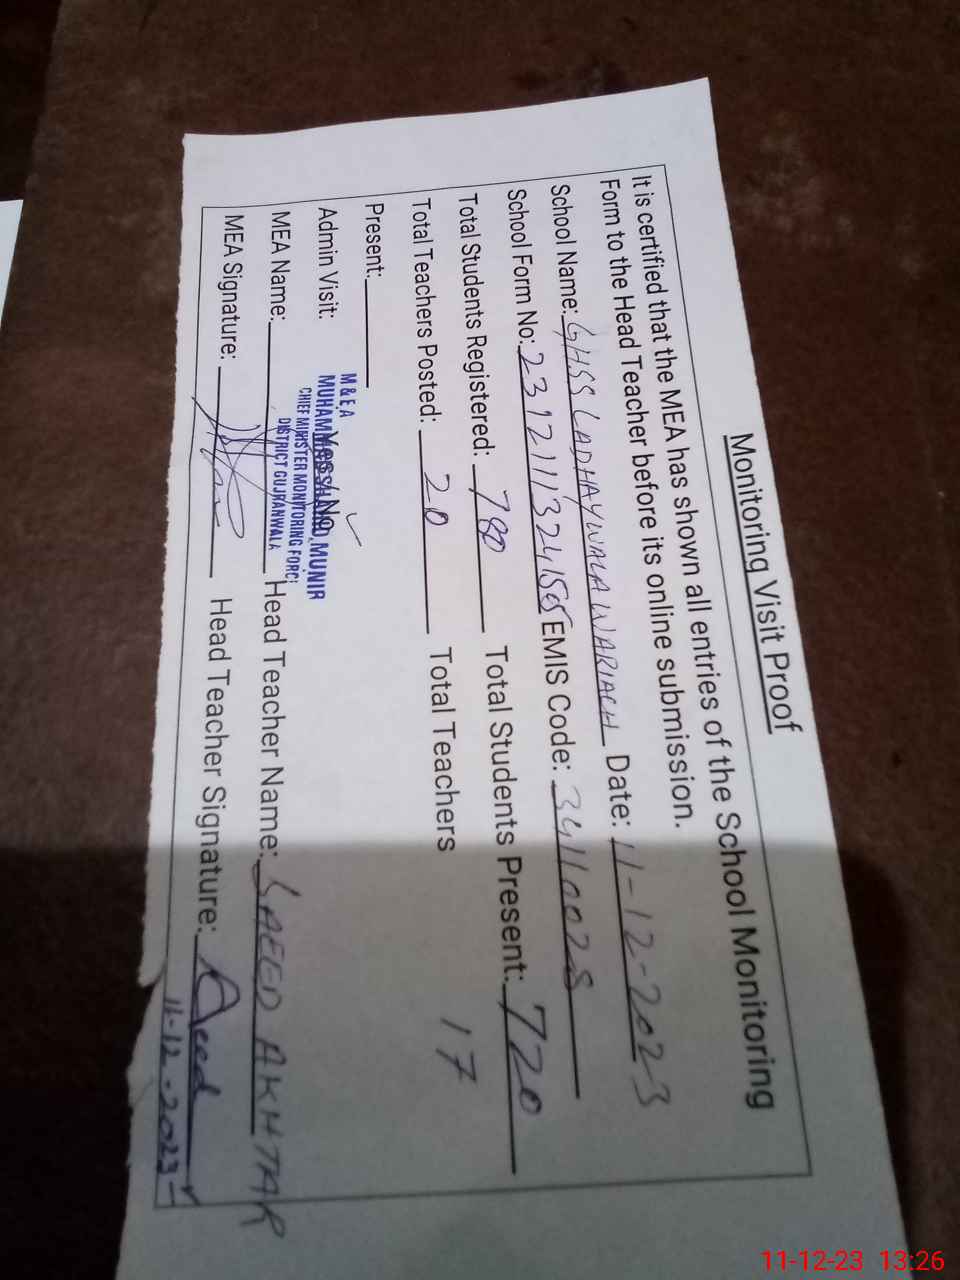 Monitoring Visit Proof
It is certified that the MEA has shown all entries of the School Monitoring
Form to the Head Teacher before its online submission.
School Name: GHSS LADHAYWALA WARIACH Date: 11-12-2023
School Form No: EMIS Code: 34110028
Total Students Registered: 780 Total Students Present: 720
Total Teachers Posted: 20 Total Teachers 17
Present:
Admin Visit: Yes / No ✓
M & E A
MUHAMMAD MUNIR
CHIEF MINISTER MONITORING FORCE
DISTRICT GUJRANWALA
MEA Name: Head Teacher Name: SAEED AKHTAR
MEA Signature: Head Teacher Signature: Saeed
11-12-2023
11-12-23 13:26